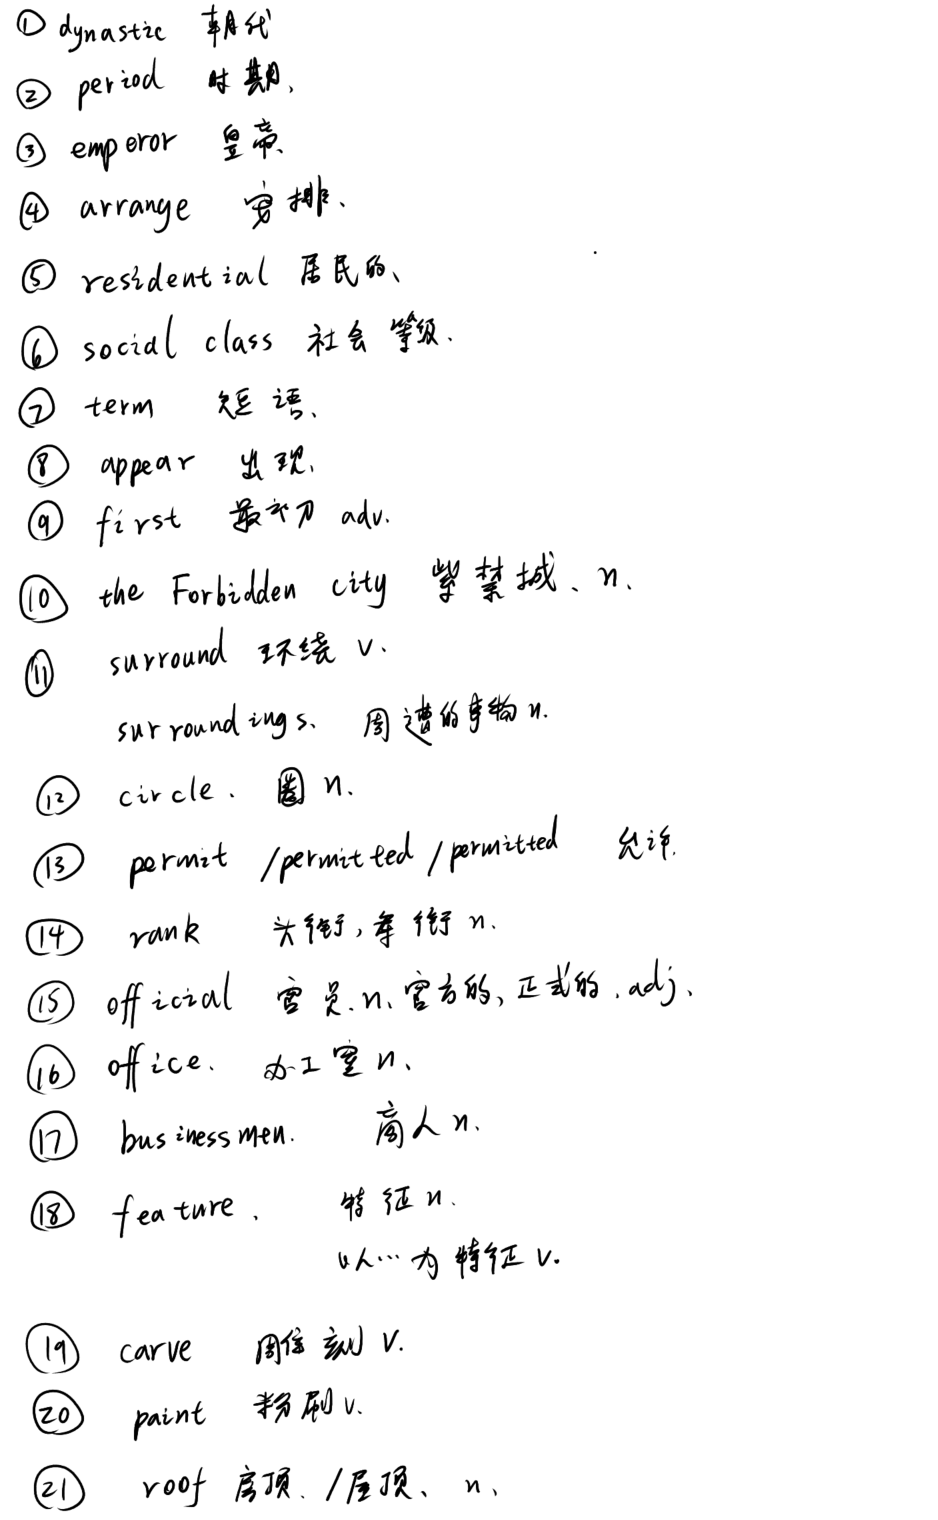 ① dynastic 朝代
② period 时期、
③ emperor 皇帝、
④ arrange 安排、
⑤ residential 居民的、
⑥ social class 社会等级.
⑦ term 短语、
⑧ appear 出现、
⑨ first 最初 adv.
⑩ the Forbidden city 紫禁城、n.
⑪ surround 环绕 v.
surroundings、 周遭的事物 n.
⑫ circle. 圈 n.
⑬ permit /permitted /permitted 允许.
⑭ rank 头衔,军衔 n.
⑮ official 官员.n、官方的,正式的.adj、
⑯ office. 办工室 n、
⑰ businessmen. 商人 n.
⑱ feature. 特征 n.
以…为特征 v.
⑲ carve 雕刻 v.
⑳ paint 粉刷 v.
㉑ roof 房顶./屋顶、n、